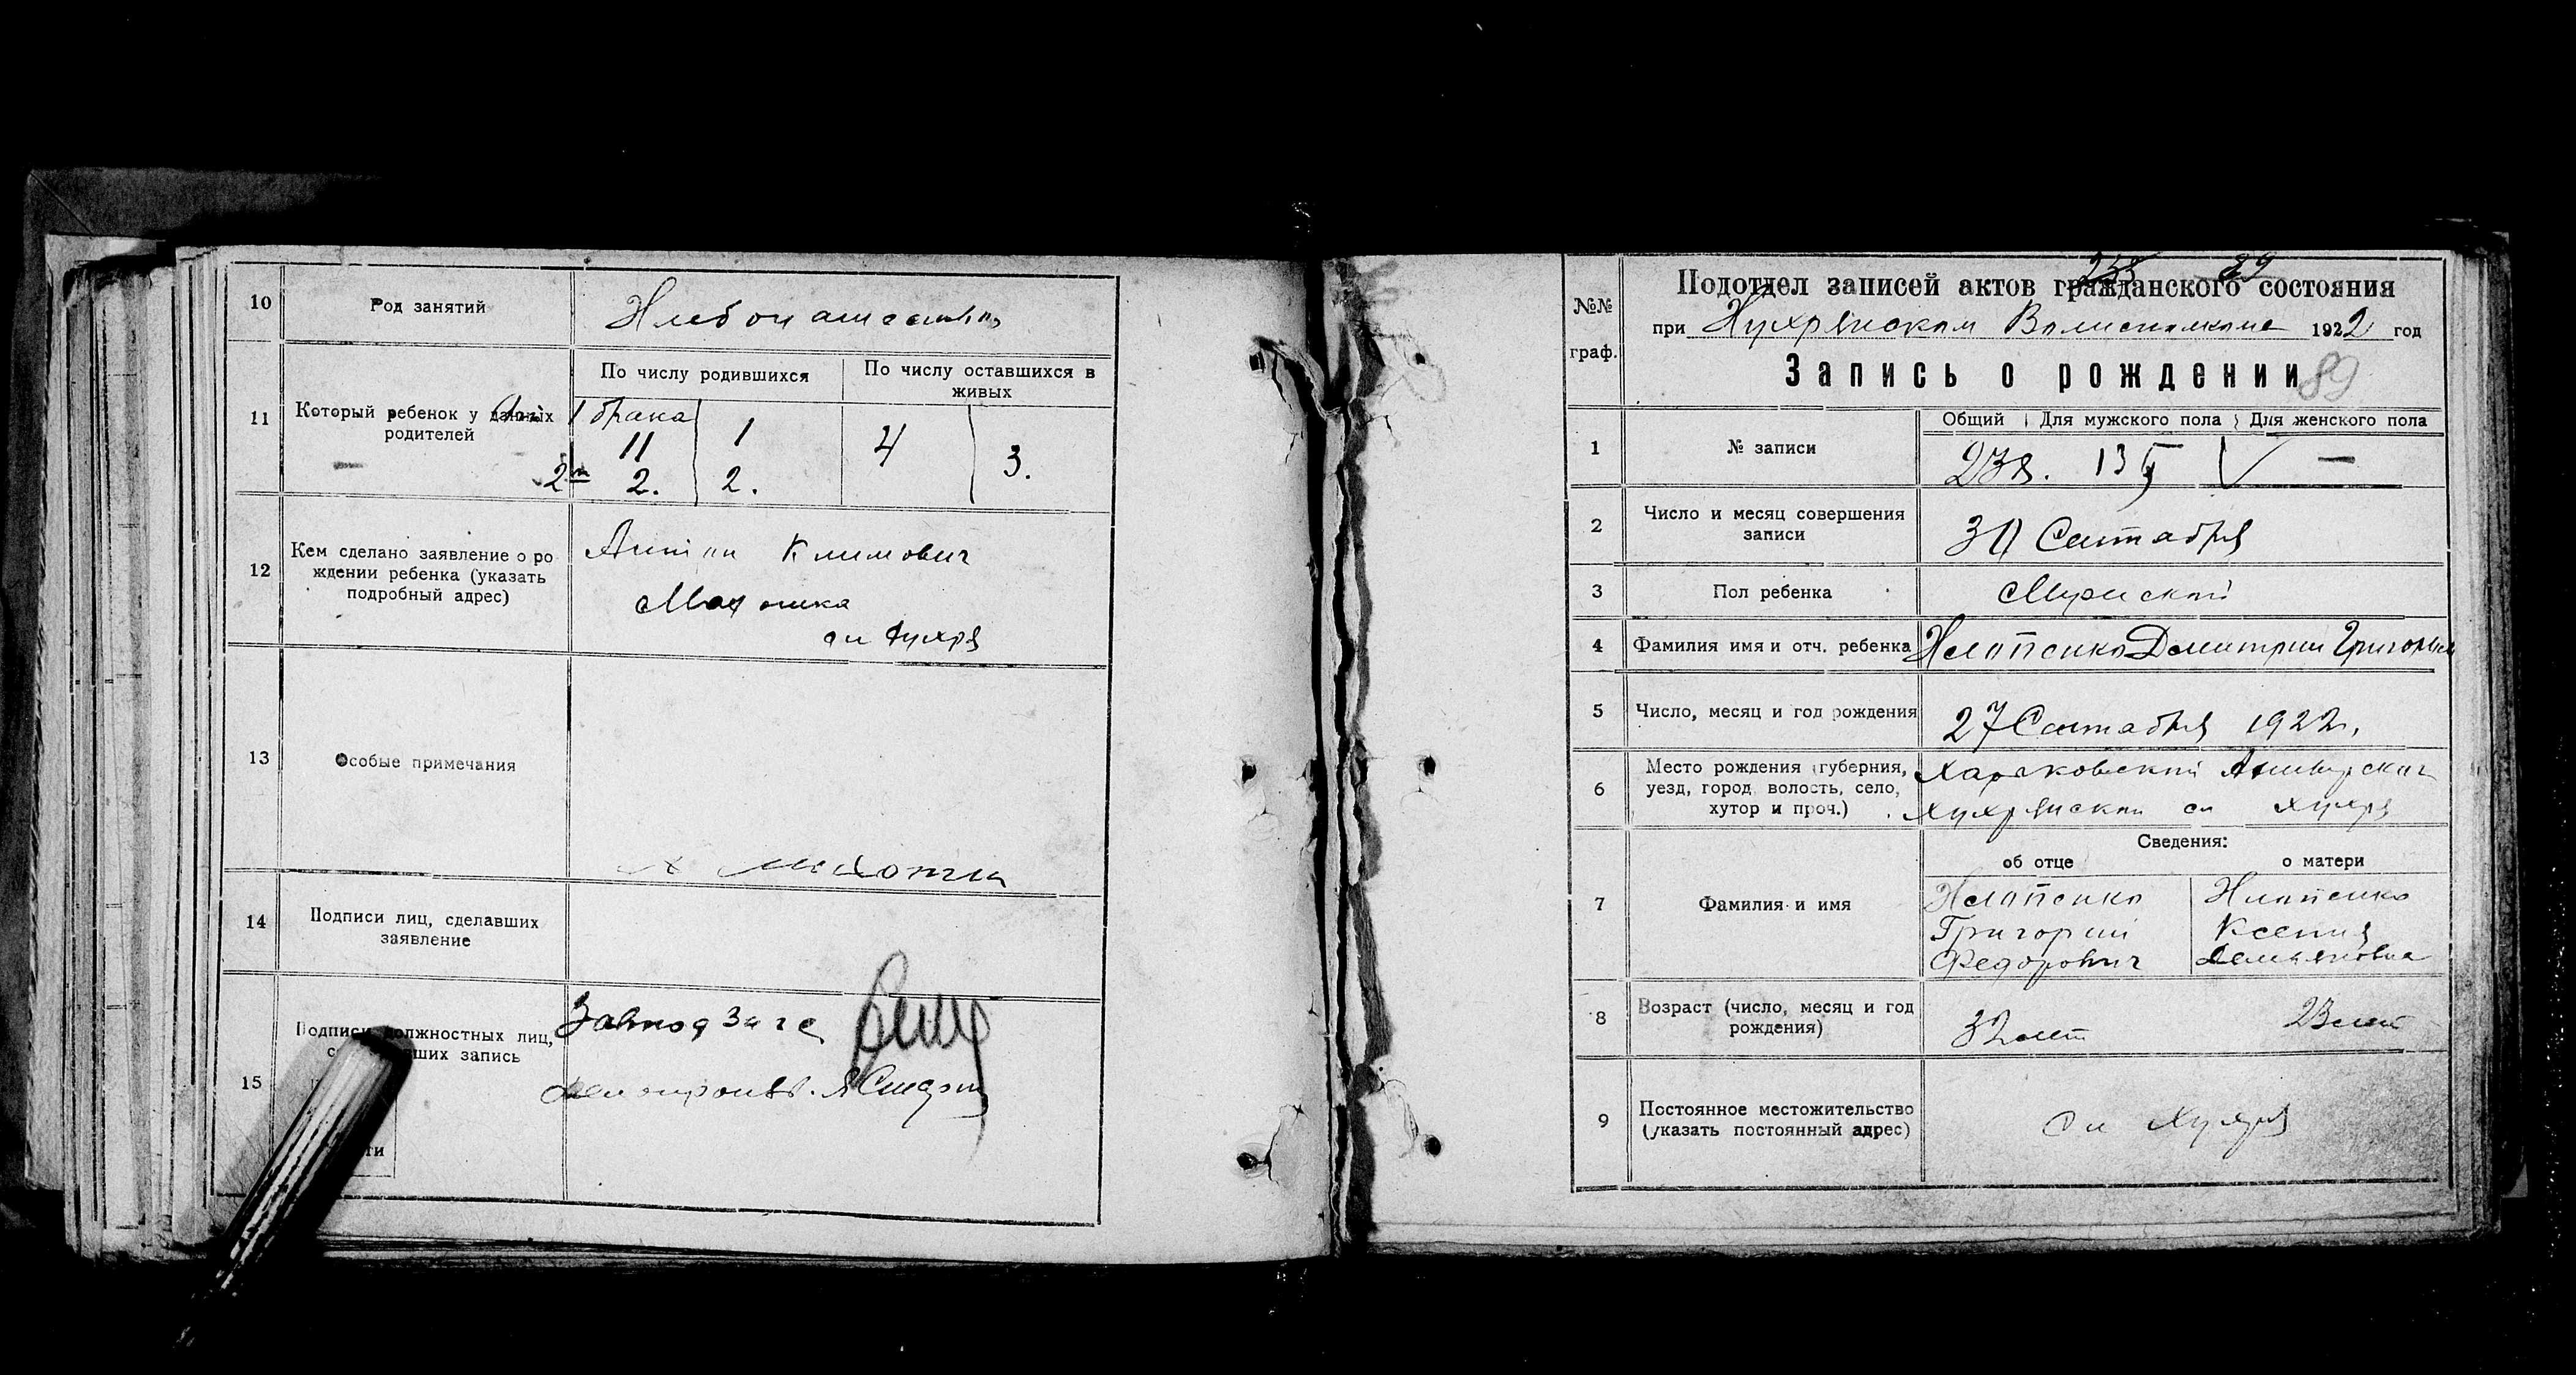 10
Род занятий
Хлебопашество
11
Который ребенок у данных родителей
По числу родившихся
По числу оставшихся в живых
1 брака
11
1
4
3.
2й
2.
2.
12
Кем сделано заявление о ро
ждении ребенка (указать
подробный адрес)
Антон Климович
Махотка
сл Хухря
13
Особые примечания
А Махотка
14
Подписи лиц, сделавших
заявление
15
Подписи должностных лиц,
ших запись
ти
Завподзагс
Делопроизв.
№№
граф.
238 89
Подотдел записей актов гражданского состояния
при Хухрянском Волисполкоме 1922 год
Запись о рождении
89
1
№ записи
Общий
Для мужского пола
Для женского пола
238. 135 —
2
Число и месяц совершения
записи
30 Сентября
3
Пол ребенка
Мужской
4
Фамилия имя и отч. ребенка
Хлапенко Димитрий Григорьев
5
Число, месяц и год рождения
27 Сентября 1922 г.
6
Место рождения (губерния,
уезд, город волость, село,
хутор и проч.)
Харьковской Ахтырской
Хухрянской сл Хухря
7
Фамилия и имя
Сведения:
об отце
о матери
Хлапенко
Григорий
Федорович
Хлапенко
Ксения
Демьяновна
8
Возраст (число, месяц и год
рождения)
32 лет
23 лет
9
Постоянное местожительство
(указать постоянный адрес)
сл Хухря